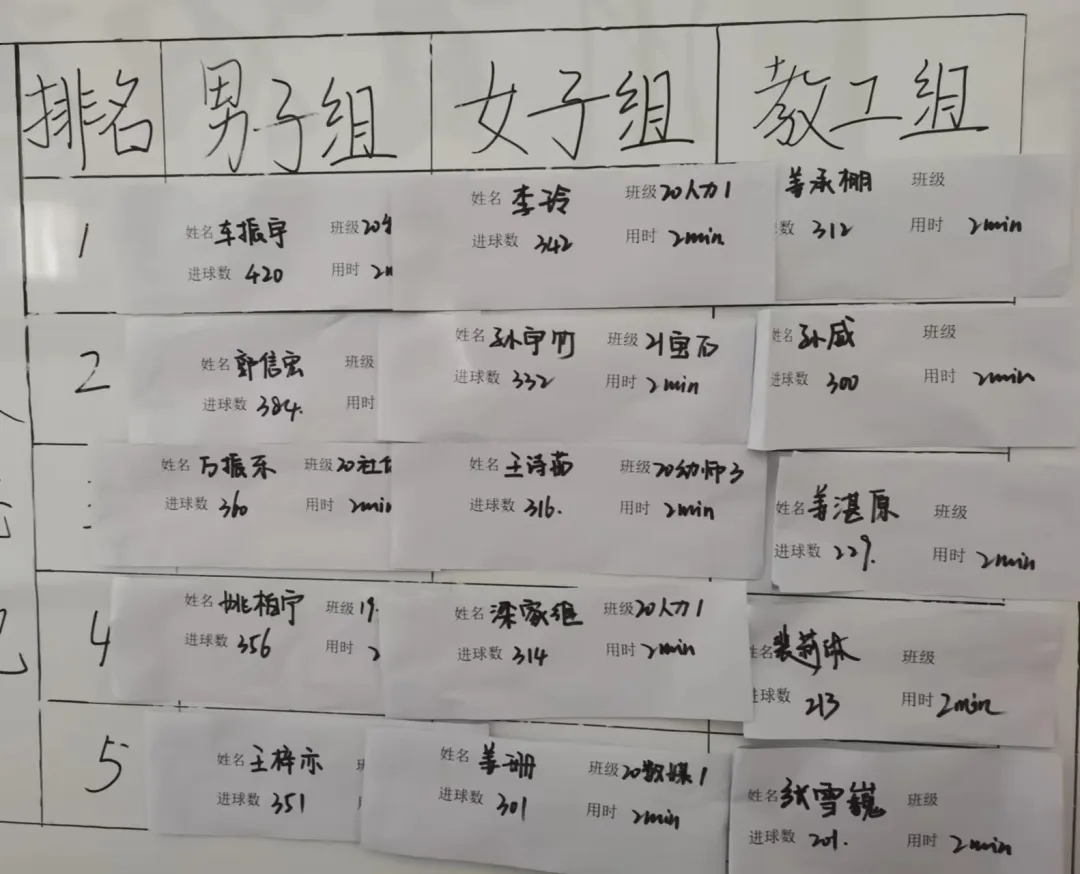 排名 男子组 女子组 教工组
1
姓名 车振宇 班级 20
进球数 420 用时
姓名 李玲 班级 20人力1
进球数 342 用时 2min
姜承棚 班级
数 312 用时 2min
2
姓名 郭信宏 班级
进球数 384. 用时
姓名 孙宇 班级
进球数 332 用时 2min
姓名 孙威 班级
进球数 300 用时 2min
姓名 万振东 班级 20社
进球数 360 用时 2min
姓名 王诗茹 班级 20幼师3
进球数 316. 用时 2min
姓名 姜湛原 班级
进球数 229. 用时 2min
4
姓名 姚柏宁 班级 19.
进球数 356 用时 2
姓名 梁家继 班级 20人力1
进球数 314 用时 2min
姓名 裴莉琳 班级
进球数 213 用时 2min
5
姓名 王梓亦
进球数 351
姓名 姜珊 班级 20数媒1
进球数 301 用时 2min
姓名 张雪巍 班级
进球数 201. 用时 2min